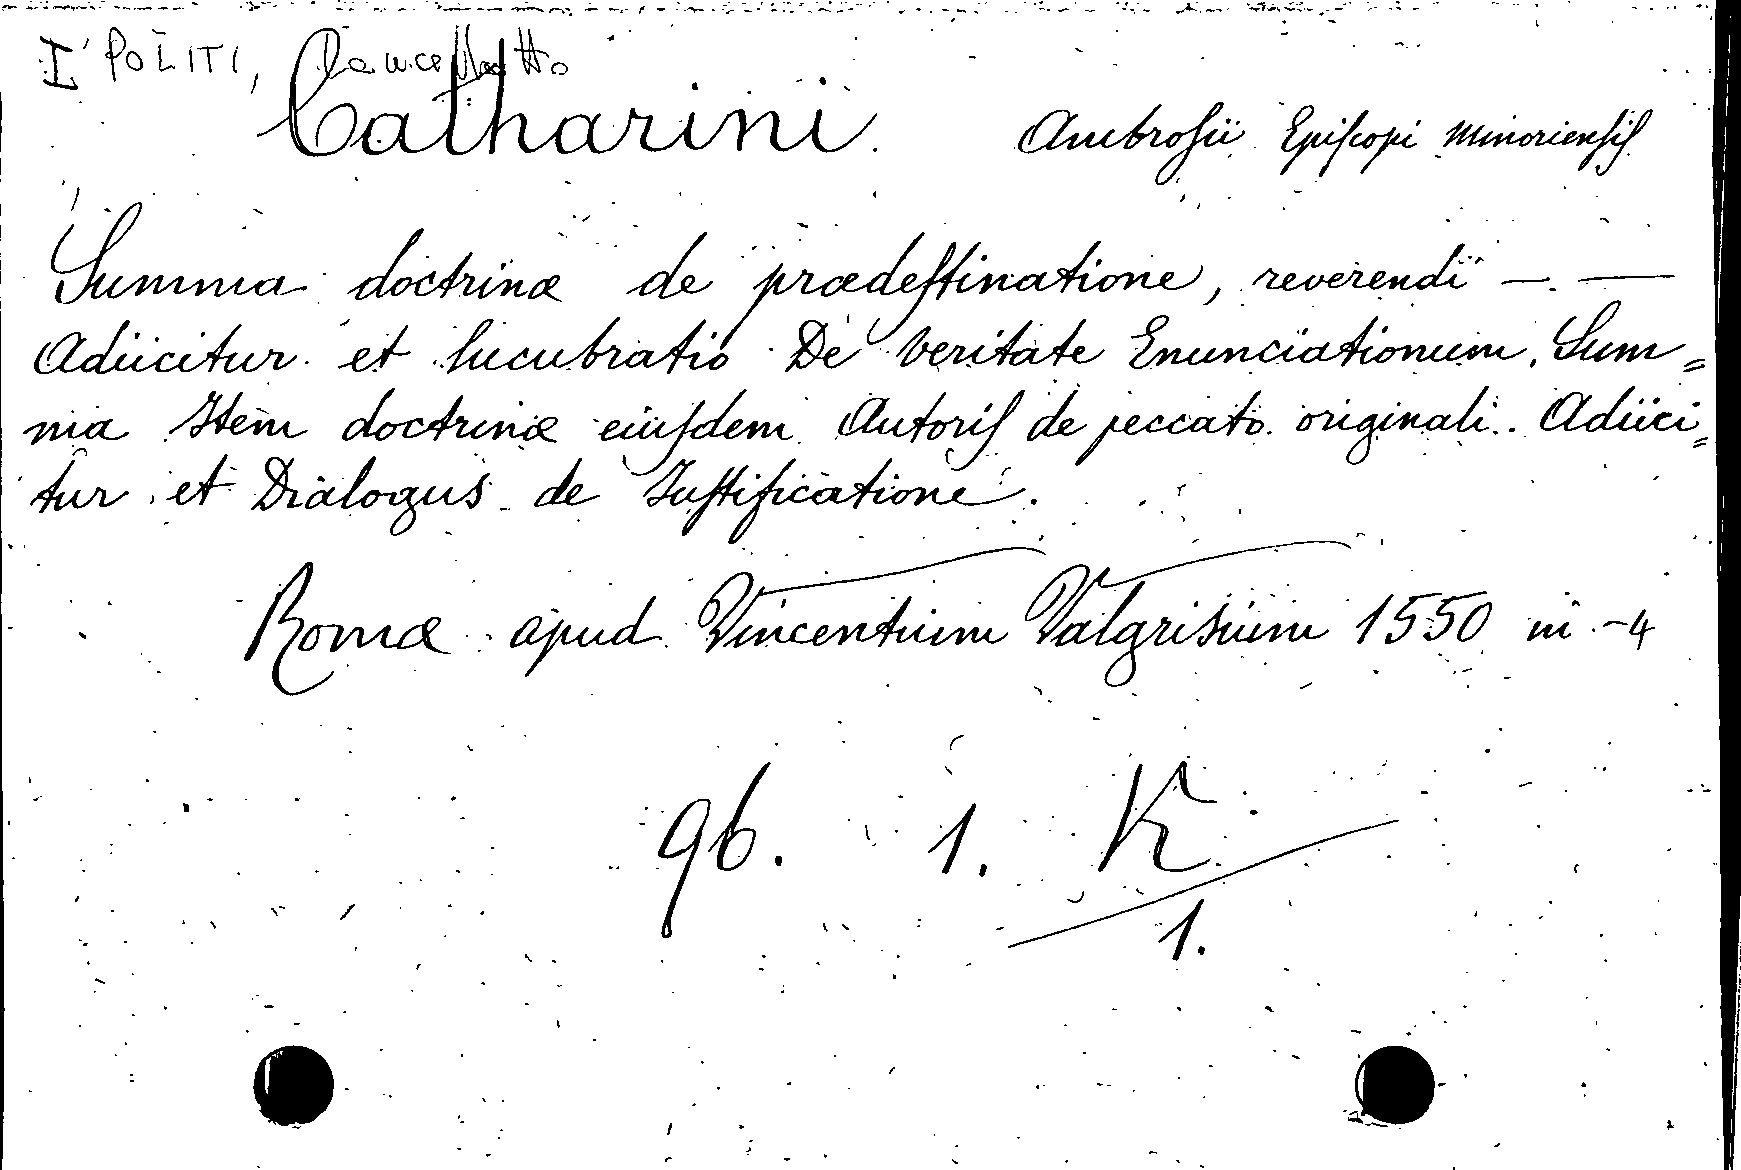 I' POLITI, Lancellotto
Catharini. Ambrosii Episcopi Minoriensis
Summa doctrinæ de prædestinatione, reverendi — —
Adiicitur et lucubratio De veritate Enunciationum. Sum=
ma Item doctrinæ eiusdem Autoris de peccato originali. Adiici=
tur et Dialogus de Iustificatione.
Romæ apud Vincentium Valgrisium 1550 in -4
96. 1. K
1.